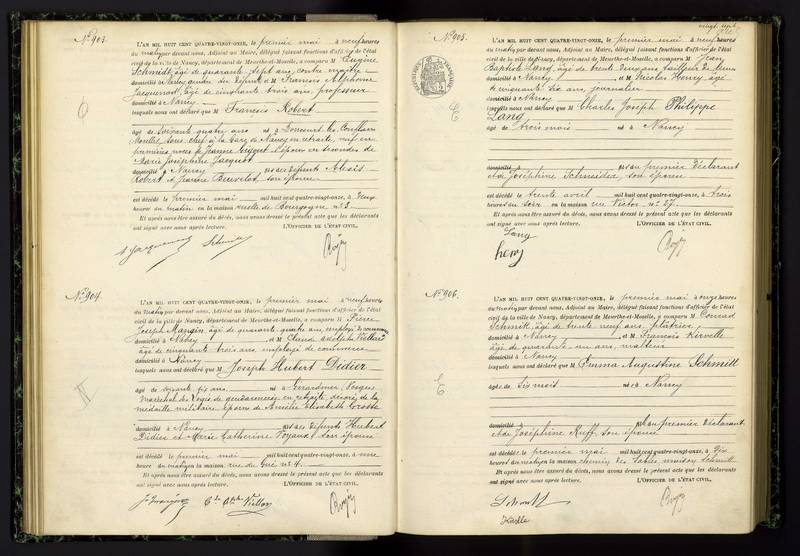 N° 903.
L'AN MIL HUIT CENT QUATRE-VINGT-ONZE, le premier mai à neuf heures
du matin par devant nous, Adjoint au Maire, délégué faisant fonctions d'officier de l'état
civil de la ville de Nancy, département de Meurthe-et-Moselle, a comparu M Eugène
Schmidt, âgé de quarante sept ans, contre maître
domicilié à et M François Alphonse
Jacquemot, âgé de cinquante trois ans, professeur
domicilié à Nancy
lesquels nous ont déclaré que M François Robert
âgé de soixante quatre ans né à
sous chef à la Gare de Nancy en retraite, veuf en
premières noces de Jeanne époux en secondes de
Marie Joséphine Jacquot
domicilié à Nancy fils des défunts Alexis
Robert et Jeanne son épouse
est décédé le premier mai mil huit cent quatre-vingt-onze, à deux
heures du matin en la maison ruelle de Bourgogne n° 3
Et après nous être assuré du décès, nous avons dressé le présent acte que les déclarants
ont signé avec nous après lecture. L'OFFICIER DE L'ÉTAT CIVIL.
N° 904.
L'AN MIL HUIT CENT QUATRE-VINGT-ONZE, le premier mai à neuf heures
du matin par devant nous, Adjoint au Maire, délégué faisant fonctions d'officier de l'état
civil de la ville de Nancy, département de Meurthe-et-Moselle, a comparu M Pierre
Joseph Mangin, âgé de quarante quatre ans, employé de commerce
domicilié à Nancy et M Claud Adolph
âgé de cinquante trois ans employé de commerce
domicilié à Nancy
lesquels nous ont déclaré que M Joseph Hubert Didier
âgé de soixante six ans né à Gérardmer, Vosges
Maréchal des Logis de gendarmerie en retraite, décoré de la
médaille militaire, époux de Amélie Elisabeth
domicilié à Nancy fils des défunts Hubert
Didier et Marie Catherine son épouse
est décédé le premier mai mil huit cent quatre-vingt-onze, à une
heure du matin en la maison rue du Gué n° 4
Et après nous être assuré du décès, nous avons dressé le présent acte que les déclarants
ont signé avec nous après lecture. L'OFFICIER DE L'ÉTAT CIVIL.
vingt sept
N° 905.
L'AN MIL HUIT CENT QUATRE-VINGT-ONZE, le premier mai à neuf heures
du matin par devant nous, Adjoint au Maire, délégué faisant fonctions d'officier de l'état
civil de la ville de Nancy, département de Meurthe-et-Moselle, a comparu M Jean
Baptiste Lang, âgé de trente deux ans tailleur de
domicilié à Nancy et M Nicolas Henry âgé
de cinquante six ans, journalier
domicilié à Nancy
lesquels nous ont déclaré que M Charles Joseph Philippe
Lang
âgé de trois mois né à Nancy
domicilié à fils du premier Déclarant
et de Joséphine Schneider, son épouse
est décédé le trente avril mil huit cent quatre-vingt-onze, à trois
heures du soir en la maison rue Victor n° 27
Et après nous être assuré du décès, nous avons dressé le présent acte que les déclarants
ont signé avec nous après lecture. L'OFFICIER DE L'ÉTAT CIVIL.
Lang
henry
N° 906.
L'AN MIL HUIT CENT QUATRE-VINGT-ONZE, le premier mai à onze heures
du matin par devant nous, Adjoint au Maire, délégué faisant fonctions d'officier de l'état
civil de la ville de Nancy, département de Meurthe-et-Moselle, a comparu M Conrad
Schmitt, âgé de trente neuf ans, plâtrier
domicilié à Nancy et M François
âgé de quarante un ans,
domicilié à Nancy
lesquels nous ont déclaré que M Emma Augustine Schmitt
âgée de six mois née à Nancy
domicilié à fille du premier Déclarant
et de Joséphine Ruff, son épouse
est décédée le premier mai mil huit cent quatre-vingt-onze, à dix
heures du matin en la maison chemin des Sables maison Schmitt
Et après nous être assuré du décès, nous avons dressé le présent acte que les déclarants
ont signé avec nous après lecture. L'OFFICIER DE L'ÉTAT CIVIL.